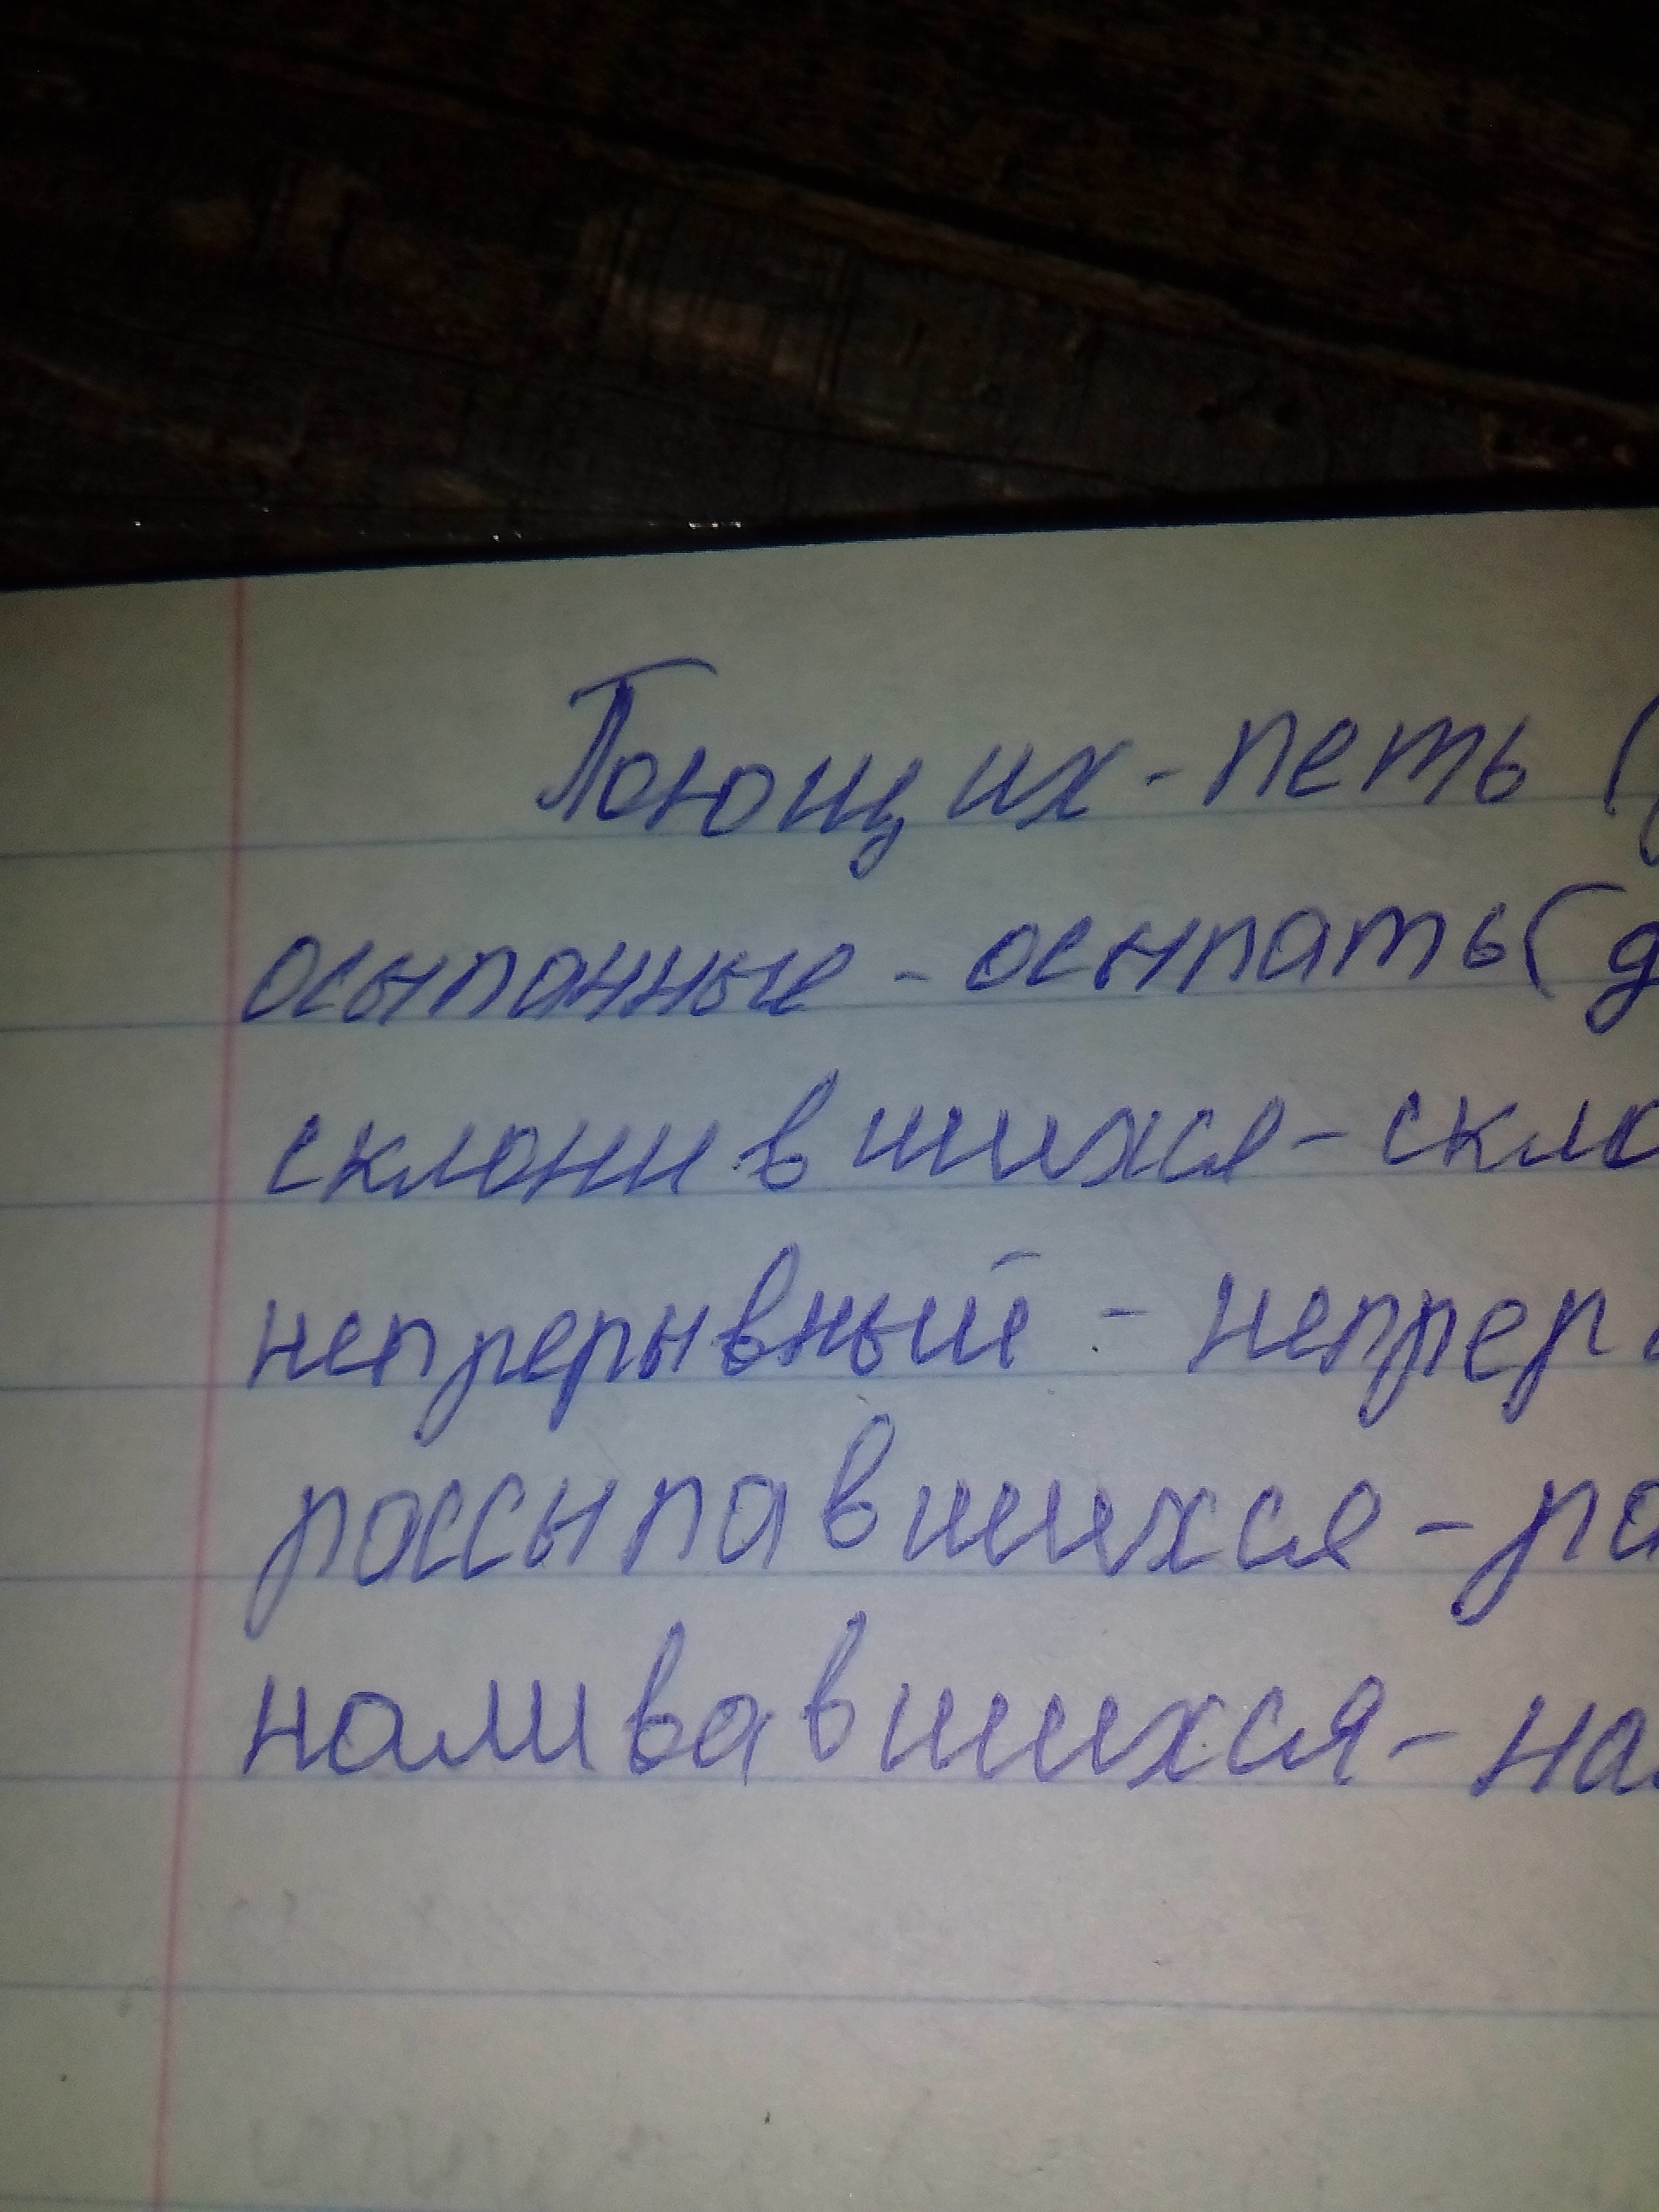 Поющих - петь (
осыпанные - осыпать (д
склонивщихся - скло
непрерывный - непрер
рассыпавшихся - ра
наливавшихся - на